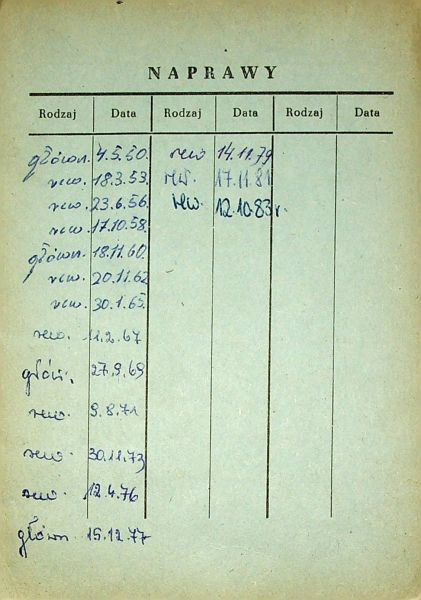 NAPRAWY
Rodzaj Data Rodzaj Data Rodzaj Data
główn. 4.5.50. rew 14.11.79
rew. 18.3.53. rew. 17.11.81
rew. 23.6.56. rew. 12.10.83r.
rew. 17.10.58.
główn. 18.11.60.
rew. 20.11.62
rew. 30.1.65.
rew. 11.2.67
główn. 27.9.69
rew. 9.8.71
rew. 30.11.73
rew. 12.4.76
główn 15.12.77